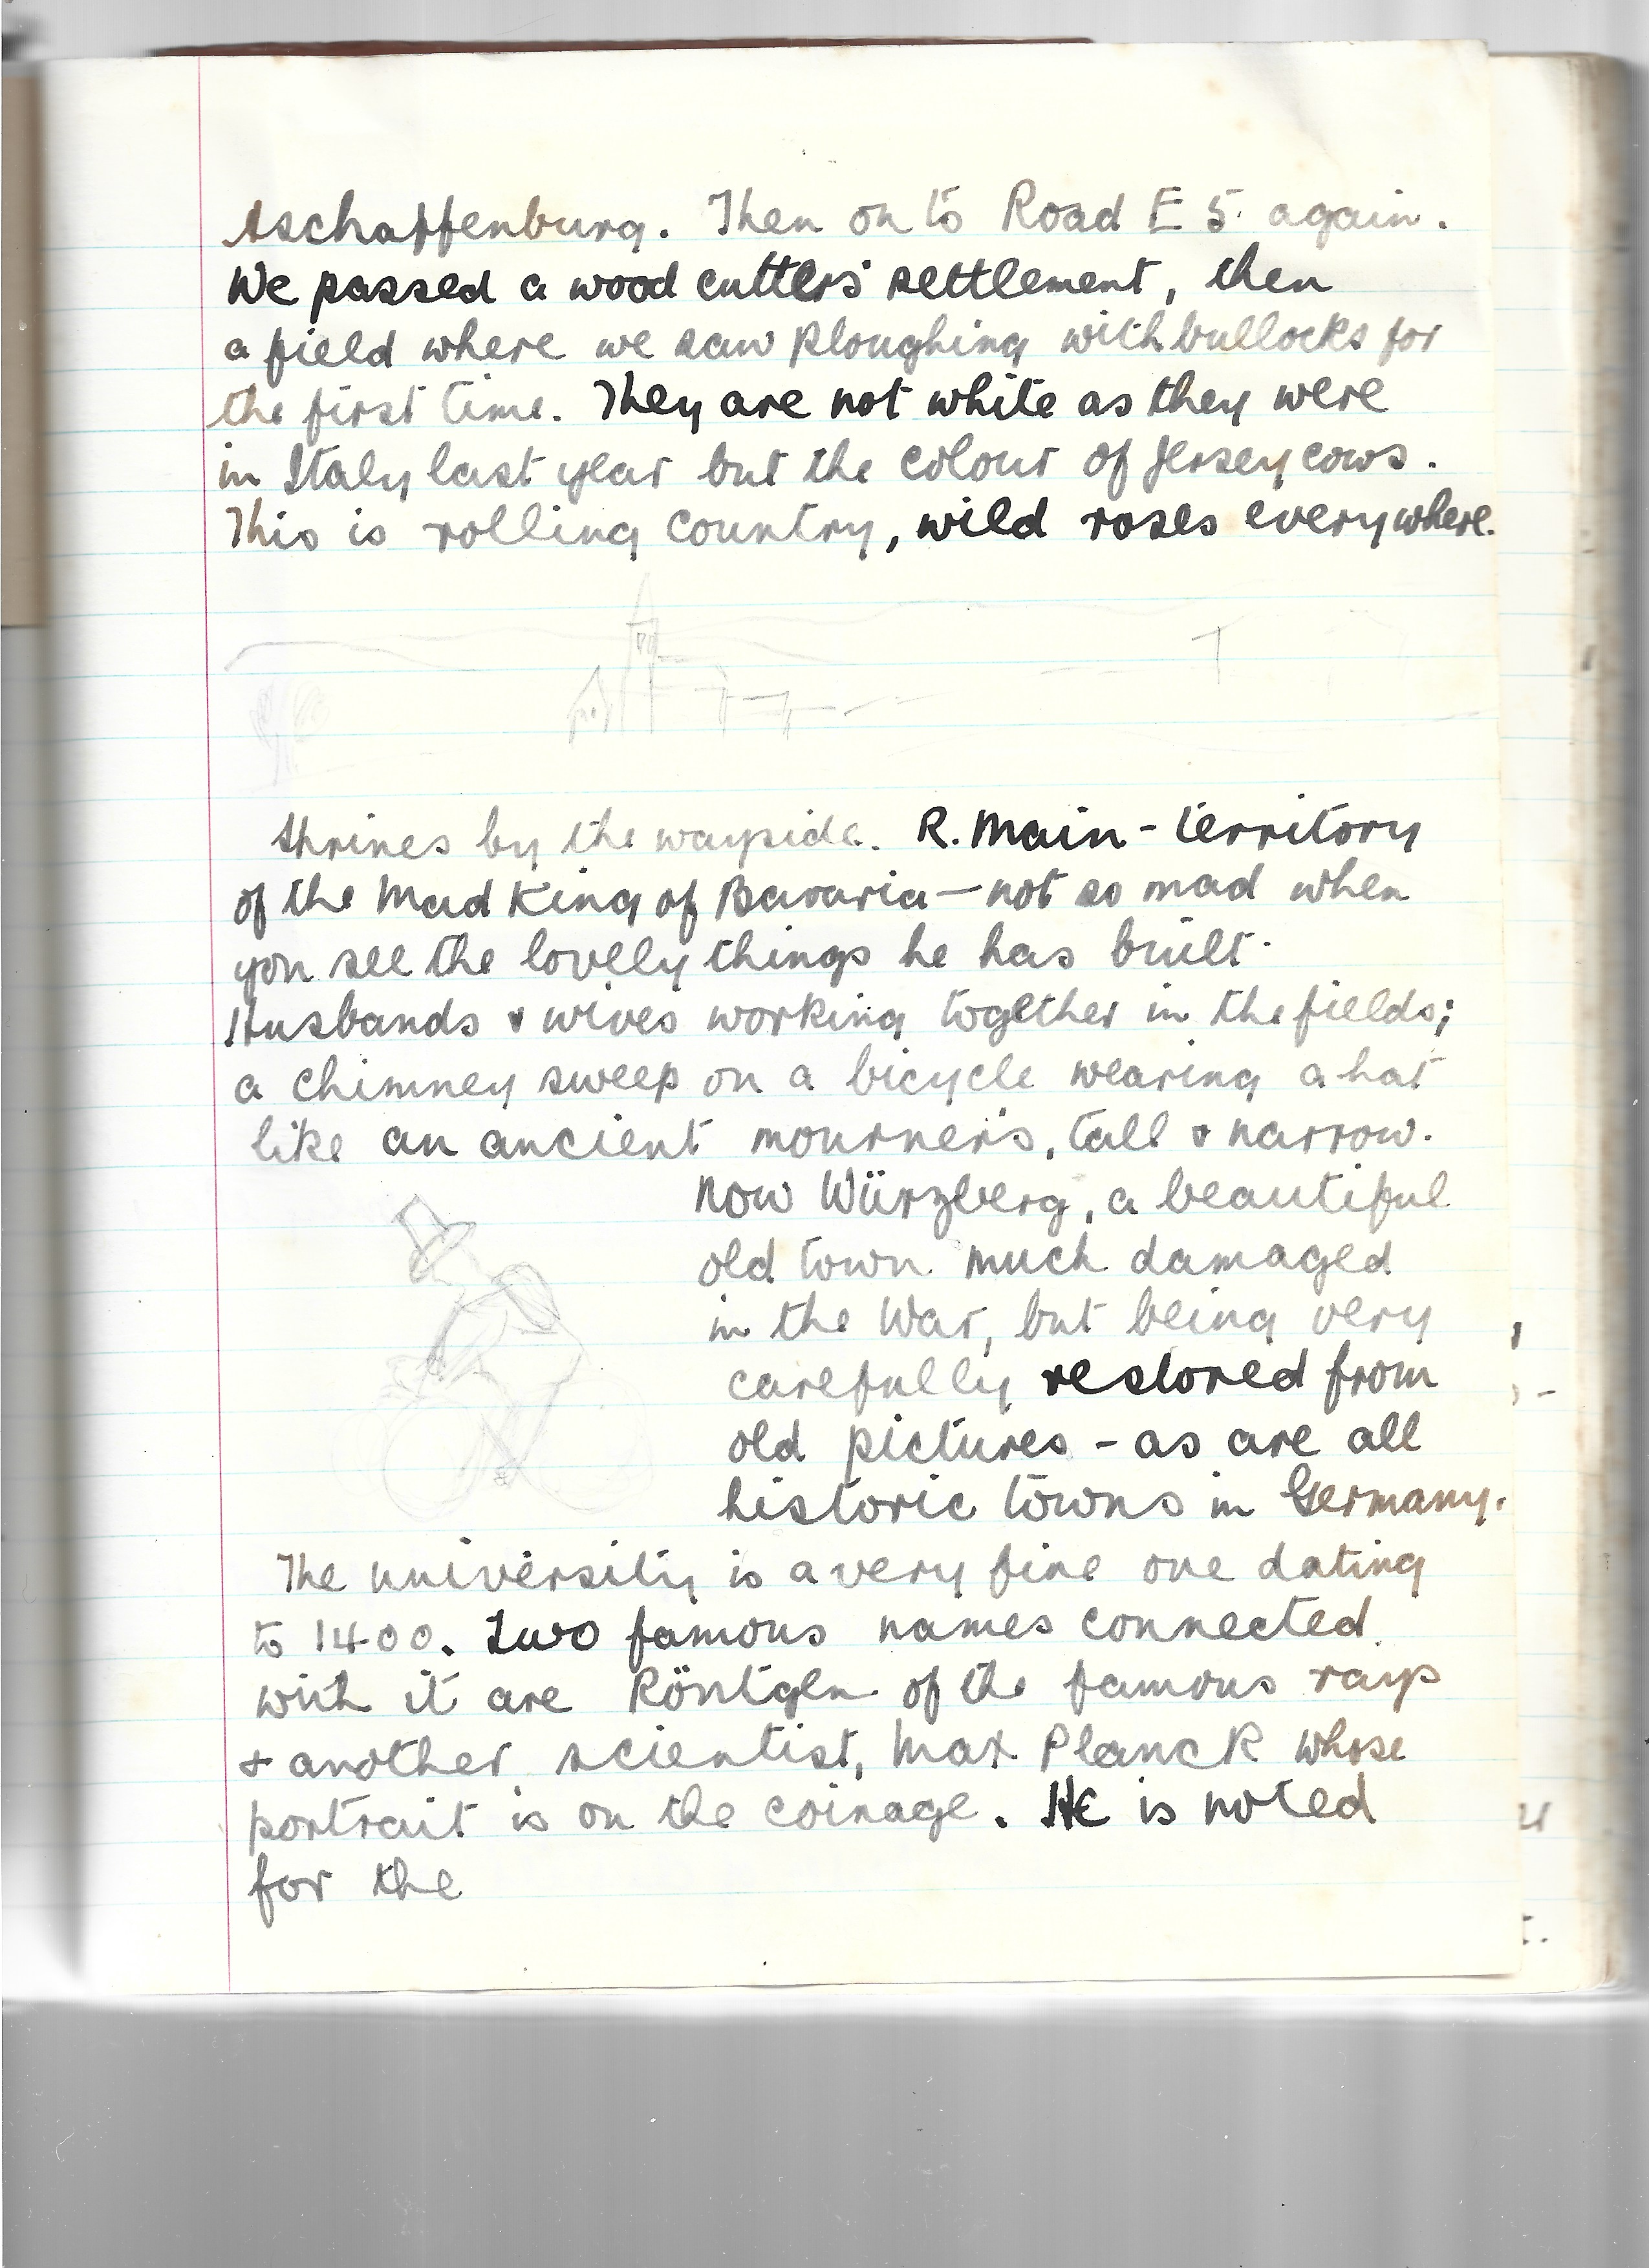 Aschaffenburg. Then on to Road E 5 again.
We passed a wood cutters' settlement, then
a field where we saw ploughing with bullocks for
the first time. They are not white as they were
in Italy last year but the colour of Jersey cows.
This is rolling country, wild roses everywhere.
Shrines by the wayside. R. Main - territory
of the Mad King of Bavaria - not so mad when
you see the lovely things he has built.
Husbands & wives working together in the fields;
a chimney sweep on a bicycle wearing a hat
like an ancient mourner's, tall & narrow.
Now Würzberg, a beautiful
old town much damaged
in the War, but being very
carefully restored from
old pictures - as are all
historic towns in Germany.
The university is a very fine one dating
to 1400. Two famous names connected
with it are Röntgen of the famous rays
& another scientist, Max Planck whose
portrait is on the coinage. He is noted
for the